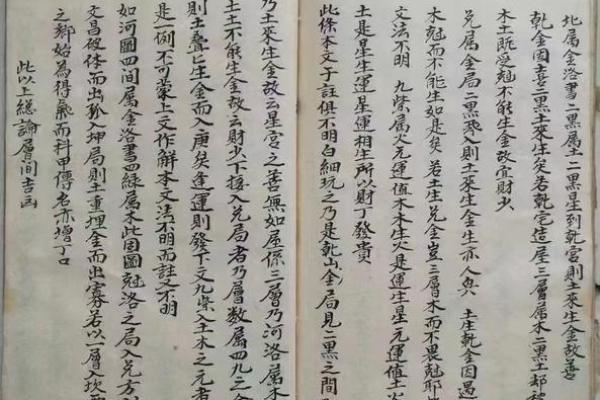 北属金洛書二黑属土二黑星到乾宮則土來生金故善
乾金固喜二黑土來生矣若乾宅造一屋三層属木二黑土却被
木土既受尅不能生金故宜財少
兑属金局二黑乘入則土來生金生亦人與 土生乾金因遇
木尅而不能生如是矣若土生兑金豈三層木而不畏尅耶
文法不明 九紫属火元運值木木生火是運生星一元運值土火
土是星生運星運相生所以財丁發貴
此條本文于註俱不明白細玩之乃是乾山金局見二黑之間
乃土來生金故云星宮之善無如屋係三層乃河洛属木
土土不能生金故云財少下接入兑局者乃層数属四九之金
則土疊生金而入庚矣逢運則發下文九紫入土木之元者
是一例不可蒙上文作解本文法不明而註又不明
如河圖四間属金洛書四緑属木此因圖尅洛之局入兑方則
文昌破体而出孤入坤局則土重埋金而出寡若以一層入坎
之鄉始為得氣而科甲傳名亦增丁口
此以上総論層間吉凶